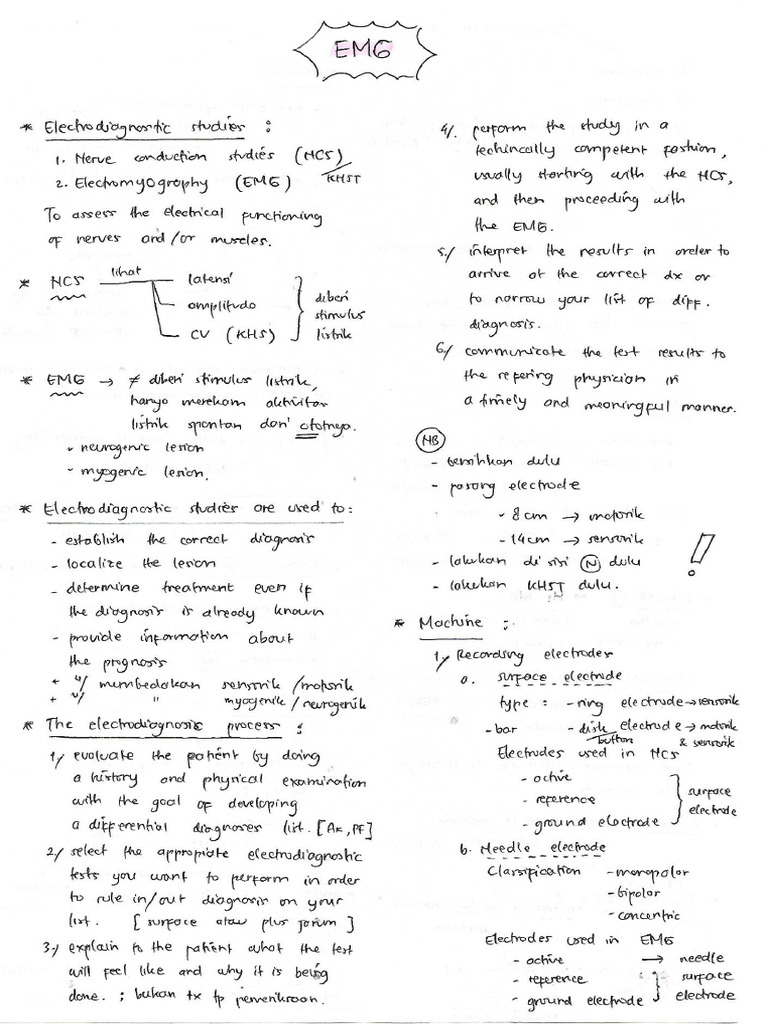 EMG
* Electrodiagnostic studies :
1. Nerve conduction studies (NCS) / KHST
2. Electromyography (EMG)
To assess the electrical functioning
of nerves and/or muscles.
* NCS lihat
latensi
amplitudo
CV (KHS)
diberi
stimulus
listrik
* EMG → ≠ diberi stimulus listrik,
hanya merekam aktivitas
listrik spontan dari ototnya.
- neurogenic lesion
- myogenic lesion.
* Electrodiagnostic studies are used to:
- establish the correct diagnosis
- localize the lesion
- determine treatment even if
the diagnosis is already known
- provide information about
the prognosis
+ u/ membedakan sensorik/motorik
+ u/ " myogenik/neurogenik
* The electrodiagnosis process :
1/ evaluate the patient by doing
a history and physical examination
with the goal of developing
a differential diagnoses list. [Ax, PF]
2/ select the appropiate electrodiagnostic
tests you want to perform in order
to rule in/out diagnosis on your
list. [surface atau plus jarum]
3/ explain to the patient what the test
will feel like and why it is being
done. ; bukan tx tp pemeriksaan.
4/. perform the study in a
techincally competent fashion,
usually starting with the NCS,
and then proceeding with
the EMG.
5/ interpret the results in order to
arrive at the correct dx or
to narrow your list of diff.
diagnosis.
6/ communicate the test results to
the refering physician in
a timely and meaningful manner.
NB
- bersihkan dulu
- pasang electrode
- 8 cm → motorik
- 14 cm → sensorik
- lakukan di sisi N dulu
- lakukan KHST dulu.
!
* Machine :
1/ Recording electrodes
a. surface electrode
type : - ring electrode → sensorik
- bar - disk electrode → motorik
button & sensorik
Electrodes used in NCS
- active
- reference
- ground electrode
surface
electrode
b. Needle electrode
Classification - monopolar
- bipolar
- concentric
Electrodes used in EMG
- active → needle
- reference surface
- ground electrode electrode